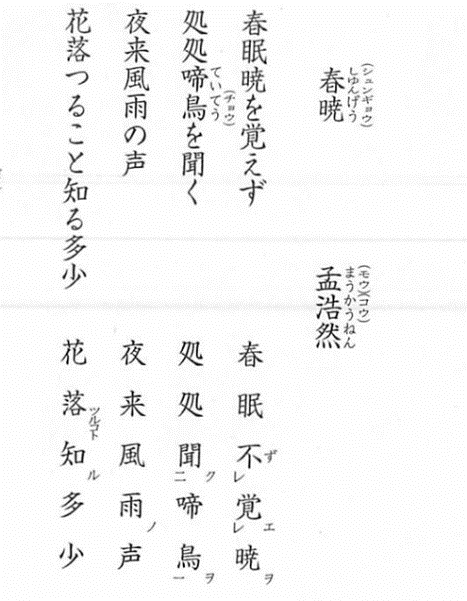 春暁
(シュンギョウ)
しゆんげう
孟浩然
(モウ)(コウ)
まうかうねん
春眠暁を覚えず
処処啼鳥を聞く
(チョウ)
ていてう
夜来風雨の声
花落つること知る多少
春眠不覚暁
ず レ エ レ ヲ
処処聞啼鳥
ク 二 ヲ 一
夜来風雨声
ノ
花落知多少
ツルコト ル